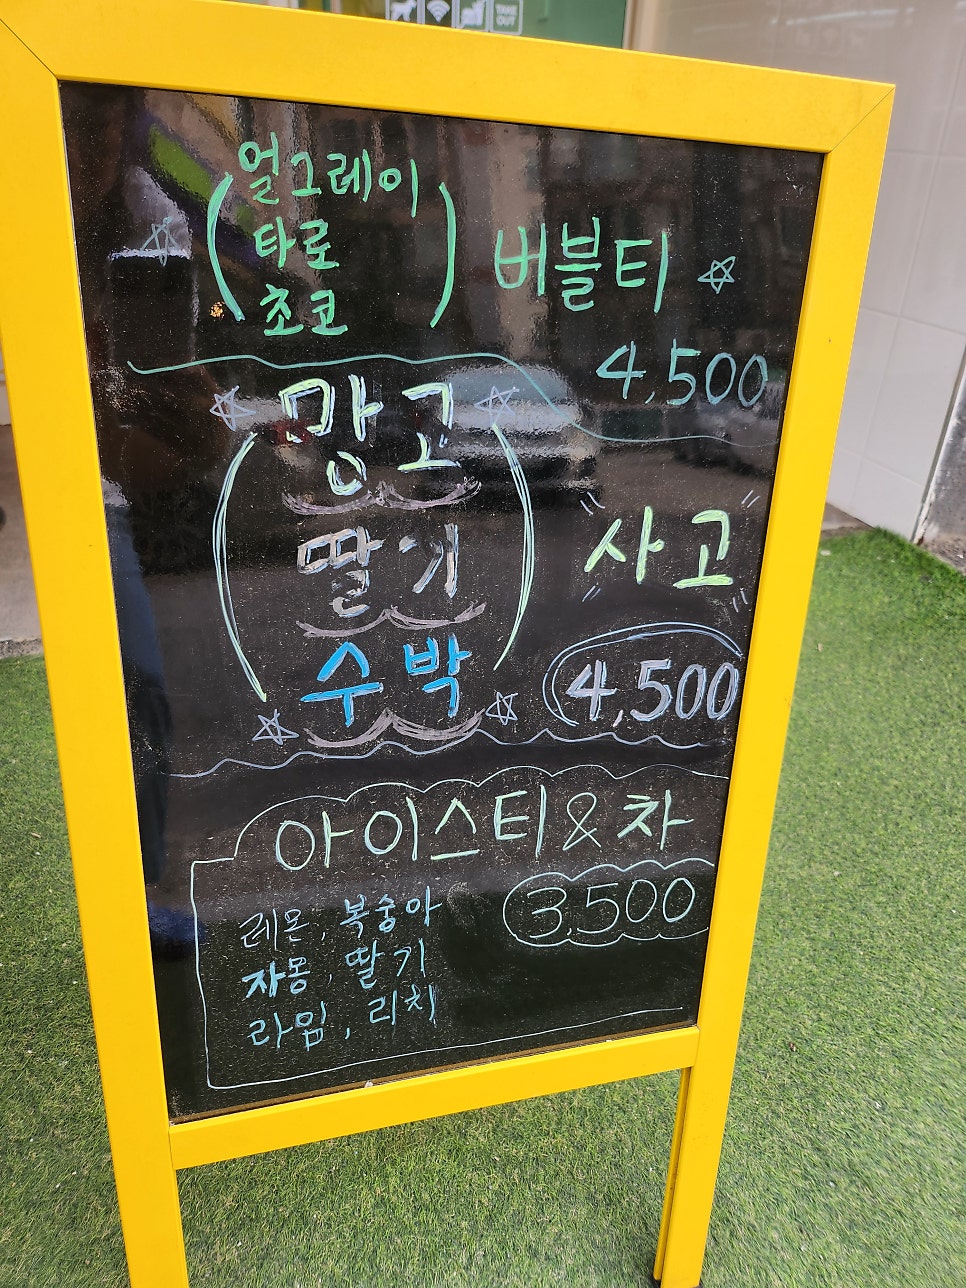 TAKE OUT
얼그레이
타로
초코
버블티
4,500
망고
딸기
수박
"사고"
4,500
아이스티 & 차
3,500
레몬, 복숭아
자몽, 딸기
라임, 리치